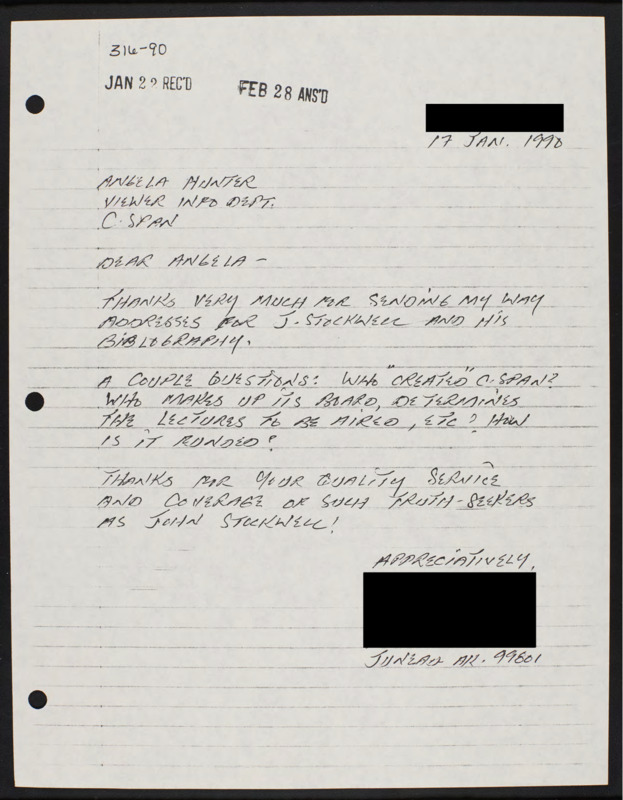 316-90
JAN 22 REC'D FEB 28 ANS'D
17 JAN. 1990
ANGELA HUNTER
VIEWER INFO DEPT.
C-SPAN
DEAR ANGELA -
THANKS VERY MUCH FOR SENDING MY WAY
ADDRESSES FOR J. STOCKWELL AND HIS
BIBLIOGRAPHY.
A COUPLE QUESTIONS: WHO "CREATED" C-SPAN?
WHO MAKES UP ITS BOARD, DETERMINES
THE LECTURES TO BE AIRED, ETC? HOW
IS IT FUNDED?
THANKS FOR YOUR QUALITY SERVICE
AND COVERAGE OF SUCH TRUTH-SEEKERS
AS JOHN STOCKWELL!
APPRECIATIVELY,
JUNEAU AK. 99801